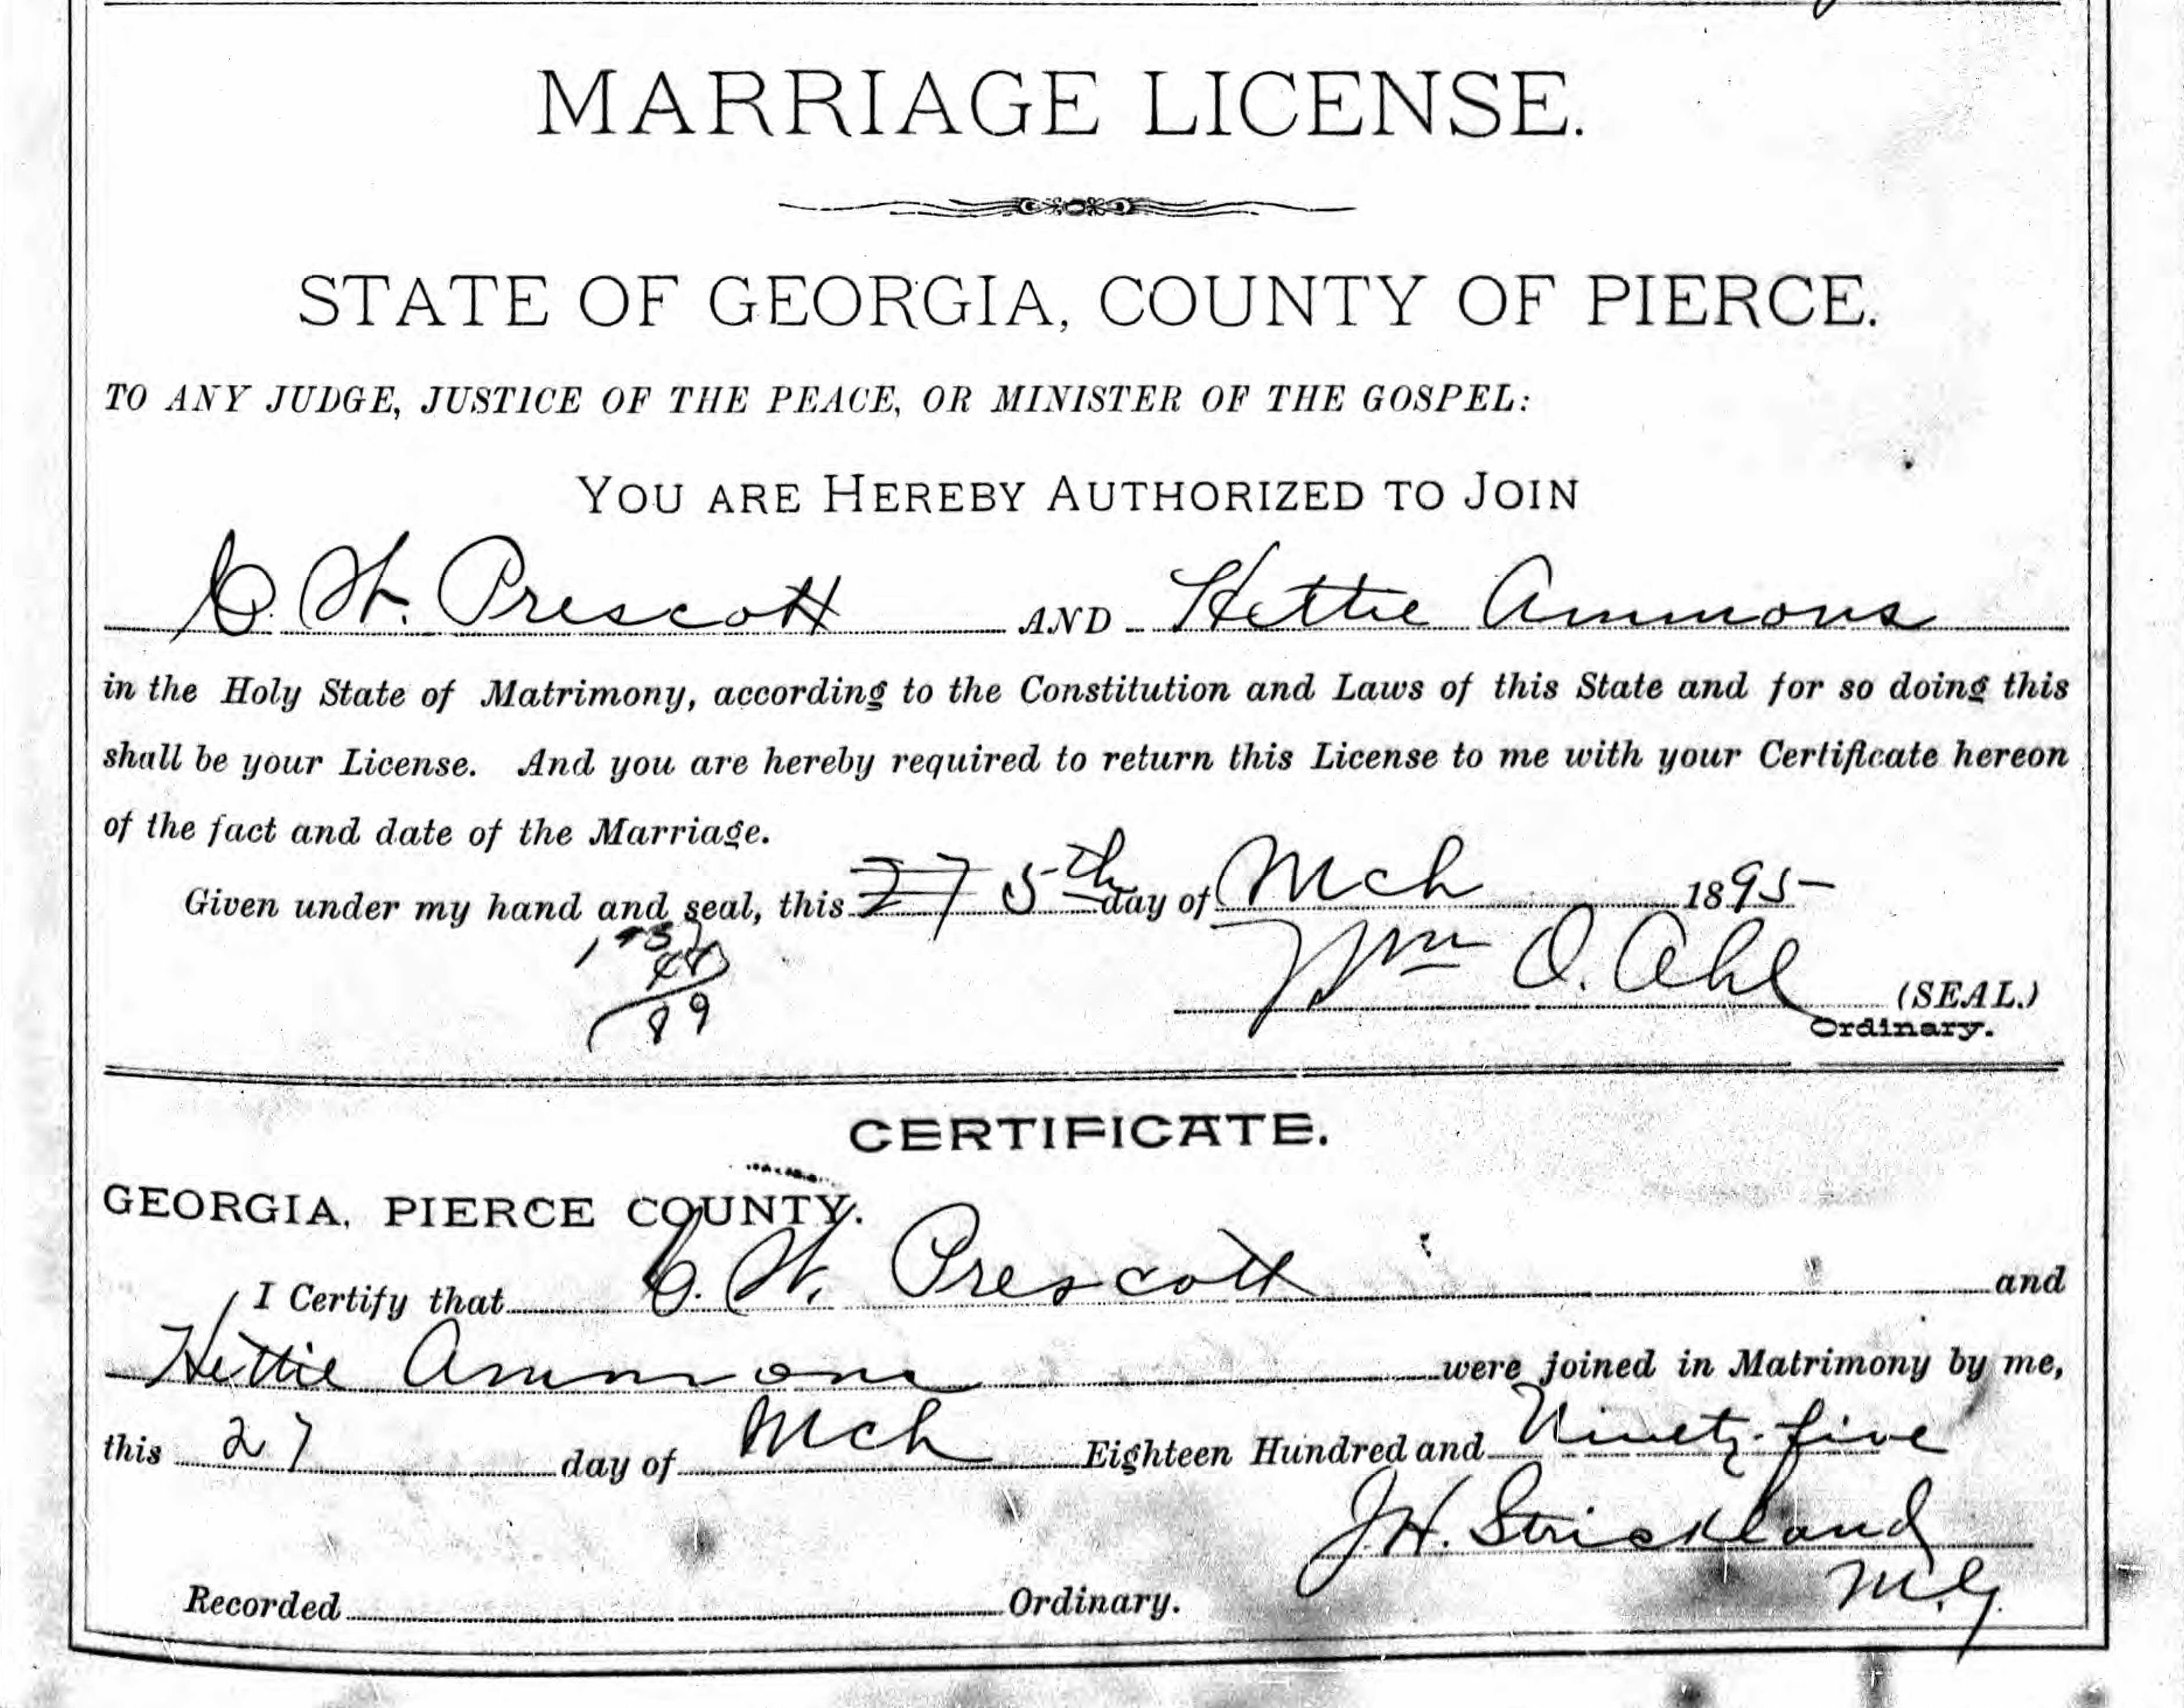 MARRIAGE LICENSE.
STATE OF GEORGIA, COUNTY OF PIERCE.
TO ANY JUDGE, JUSTICE OF THE PEACE, OR MINISTER OF THE GOSPEL:
YOU ARE HEREBY AUTHORIZED TO JOIN
C. W. Prescott AND Hettie Ammons
in the Holy State of Matrimony, according to the Constitution and Laws of this State and for so doing this
shall be your License. And you are hereby required to return this License to me with your Certificate hereon
of the fact and date of the Marriage.
Given under my hand and seal, this 27 5th day of Mch 1895
Wm O. Ahl (SEAL.)
Ordinary.
CERTIFICATE.
GEORGIA, PIERCE COUNTY.
I Certify that C. W. Prescott and
Hettie Ammons were joined in Matrimony by me,
this 27 day of Mch Eighteen Hundred and Ninety-five
J.H. Strickland
M.G.
Recorded Ordinary.